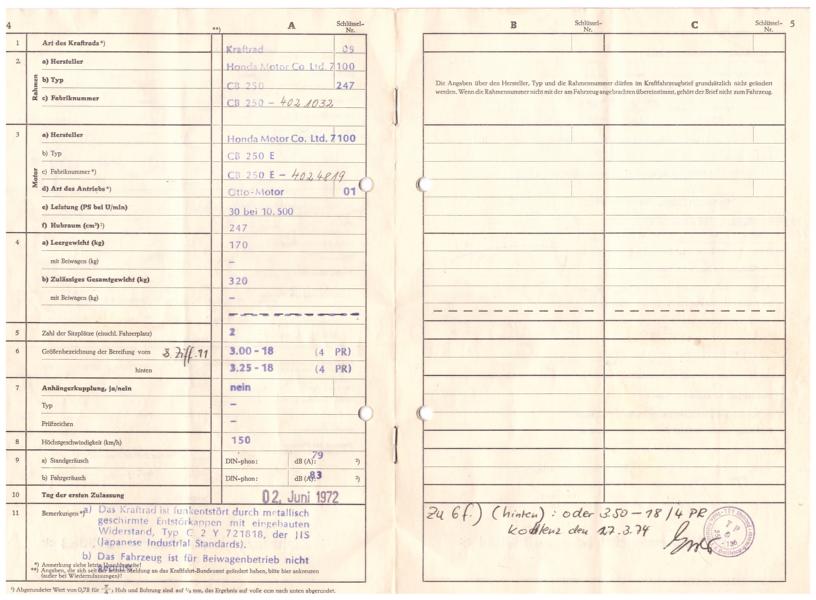 4
**)
A
Schlüssel-
Nr.
1 Art des Kraftrads*) Kraftrad 09
2. Rahmen a) Hersteller Honda Motor Co. Ltd. 7100
b) Typ CB 250 247
c) Fabriknummer CB 250 - 4021032
3 Motor a) Hersteller Honda Motor Co. Ltd. 7100
b) Typ CB 250 E
c) Fabriknummer*) CB 250 E - 4024819
d) Art des Antriebs*) Otto-Motor 01
e) Leistung (PS bei U/min) 30 bei 10.500
f) Hubraum (cm³)¹) 247
4 a) Leergewicht (kg) 170
mit Beiwagen (kg) –
b) Zulässiges Gesamtgewicht (kg) 320
mit Beiwagen (kg) –
5 Zahl der Sitzplätze (einschl. Fahrerplatz) 2
6 Größenbezeichnung der Bereifung vorn s. Ziff. 11 3.00 - 18 (4 PR)
hinten 3.25 - 18 (4 PR)
7 Anhängerkupplung, ja/nein nein
Typ –
Prüfzeichen –
8 Höchstgeschwindigkeit (km/h) 150
9 a) Standgeräusch DIN-phon: dB (A): 79 ²)
b) Fahrgeräusch DIN-phon: dB (A): 83 ²)
10 Tag der ersten Zulassung 02. Juni 1972
11 Bemerkungen *) a) Das Kraftrad ist funkentstört durch metallisch
geschirmte Entstörkappen mit eingebauten
Widerstand, Typ C 2 Y 721818, der JIS
(Japanese Industrial Standards).
b) Das Fahrzeug ist für Beiwagenbetrieb nicht
*) Anmerkung siehe letzte
**) Angaben, die sich seit der letzten Meldung an das Kraftfahrt-Bundesamt geändert haben, bitte hier ankreuzen
(außer bei Wiederzulassungen)!
¹) Abgerundeter Wert von 0,78 für π/4; Hub und Bohrung sind auf ½ mm, das Ergebnis auf volle ccm nach unten abgerundet.
B
Schlüssel-
Nr.
C
Schlüssel-
Nr.
5
Die Angaben über den Hersteller, Typ und die Rahmennummer dürfen im Kraftfahrzeugbrief grundsätzlich nicht geändert
werden. Wenn die Rahmennummer nicht mit der am Fahrzeug angebrachten übereinstimmt, gehört der Brief nicht zum Fahrzeug.
Zu 6f.) (hinten) : oder 3.50 – 18 / 4 PR
Koblenz den 27.3.74